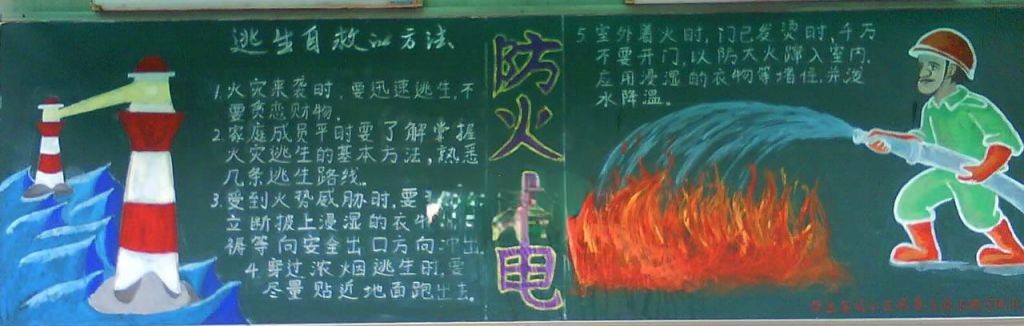 逃生自救的方法
1.火灾来袭时,要迅速逃生,不
要贪恋财物。
2.家庭成员平时要了解掌握
火灾逃生的基本方法,熟悉
几条逃生路线。
3.受到火势威胁时,要
立断披上浸湿的衣
褥等向安全出口方向冲出
4.穿过浓烟逃生时,要
尽量贴近地面跑出去。
防火
电
5 室外着火时,门已发烫时,千万
不要开门,以防大火蹿入室内,
应用浸湿的衣物等堵住,并泼
水降温。